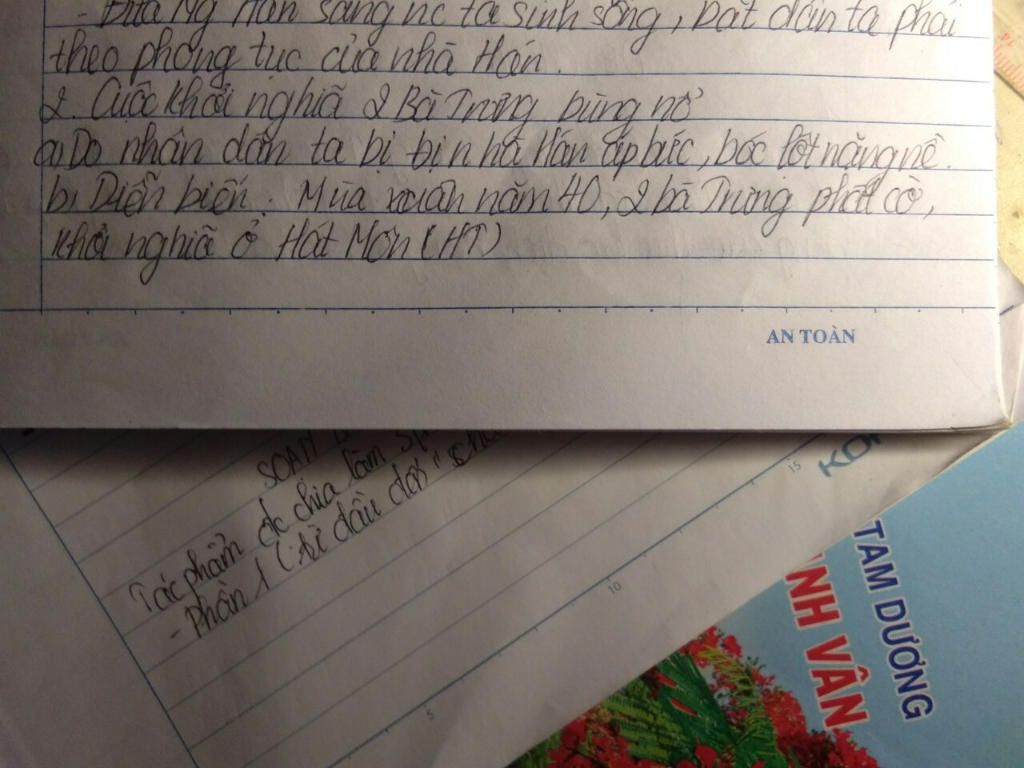 - Đưa ng Hán sang nc ta sinh sống, bắt dân ta phải
theo phong tục của nhà Hán.
2. Cuộc khởi nghĩa 2 Bà Trưng bùng nổ
a) Do nhân dân ta bị bị nhà Hán áp bức, bóc lột nặng nề.
b) Diễn biến: Mùa xuân năm 40, 2 bà Trưng phất cờ,
khởi nghĩa ở Hát Môn (HT)
AN TOÀN
SOẠN
Tác phẩm đc chia làm
- Phần 1 (từ đầu đến
15
10
5
TAM DƯƠNG